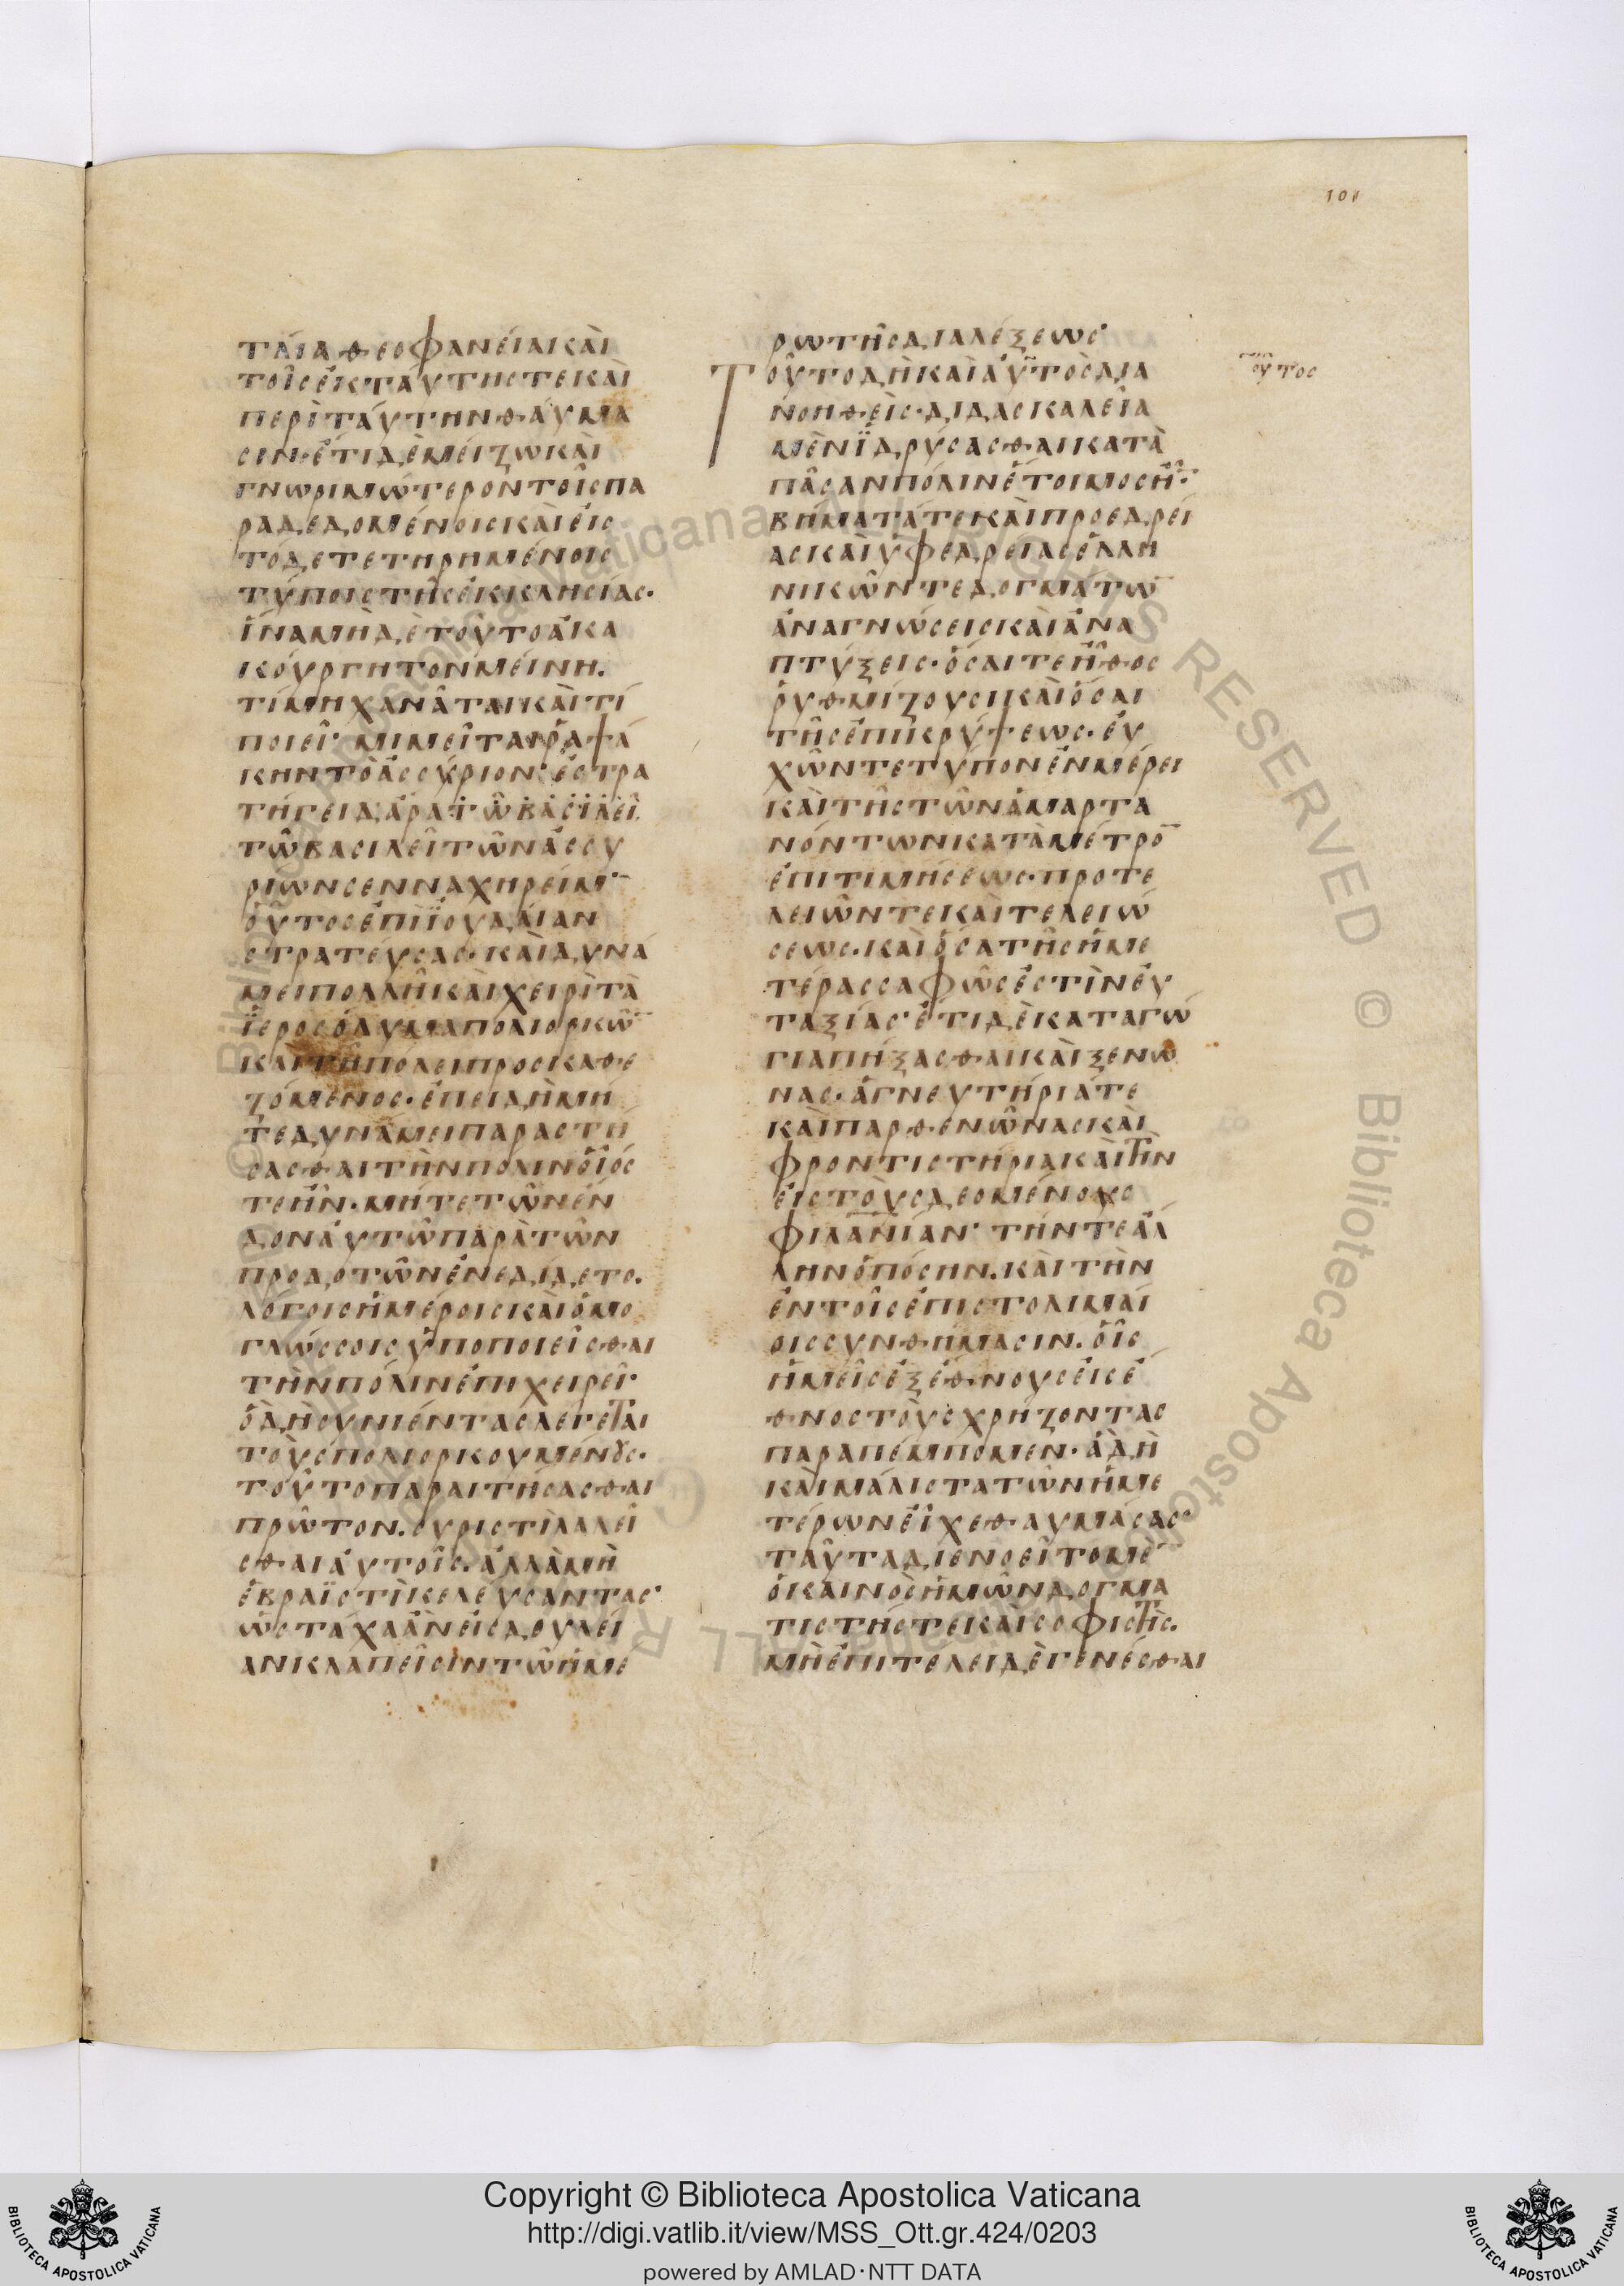 101
ταία θεοφανείαι καὶ
τοῖς ἐκ ταύτης τε καὶ
περὶ ταύτην θαύμα
σιν· ἔτι δὲ μείζω καὶ
γνωριμώτερον τοῖς πα
ραδεδομένοις καὶ εἰς
τόδε τετηρημένοις
τύποις τῆς ἐκκλησίας·
ἵνα μὴ δὲ τοῦτο ἀκα
κούργητον μείνη.
τί μηχανᾶται καὶ τί
ποιεῖ· μιμεῖται ῥαψά
κην τὸ ἀσσύριον· ἐστρα
τήγει δ' ἄρα τῷ βασιλεῖ
τῷ βασιλεῖ τῶν ἀσσυ
ρίων σενναχηρείμ·
οὗτος ἐπὶ ϊουδαίαν
στρατεύσας· καὶ δυνά
μει πολλῆ καὶ χειρὶ τὰ
ϊεροσόλυμα πολιορκῶ
καὶ τῆ πόλει προσκαθε
ζόμενος· ἐπειδὴ μή
τε δυνάμει παραστή
σασθαι τὴν πόλιν οἷός
τε ἦν· μήτε τῶν ἔν
δον αὐτῷ παρὰ τῶν
προδοτῶν ἐνεδίδετο.
λόγοις ἡμέροις καὶ ὁμο
γλώσσοις ὑποποιεῖσθαι
τὴν πόλιν ἐπιχειρεῖ·
ὃ δὴ συνιέντας λέγεται
τοὺς πολιορκουμένους·
τοῦτο παραιτήσασθαι
πρῶτον. συριστὶ λαλεῖ
σθαι αὐτοῖς. ἀλλὰ μὴ
ἑβραϊστὶ κελεύσαντας·
ὡς τάχα ἂν εἰς δουλεί
αν κλαπεῖσιν τῷ ἡμέ
ρω τῆς διαλέξεως·
Τοῦτο δὴ καὶ αὐτὸς δια
νοηθεὶς· διδασκαλεῖα
μὲν ϊδρύσασθαι κατὰ
πᾶσαν πόλιν ἕτοιμος ἦ·
βήματά τε καὶ προεδρεί
ας καὶ ὑφεδρείας ἑλλη
νικῶν τε δογμάτω
ἀναγνώσεις καὶ ἀνα
πτύξεις· ὅσαι τε ἦθος
ῥυθμίζουσι καὶ ὅσαι
τῆς ἐπικρύψεως· εὐ
χῶν τε τύπον ἐν μέρει
καὶ τῆς τῶν ἁμαρτα
νόντων κατὰ μέτρο
ἐπιτιμήσεως· προτε
λειῶν τε καὶ τελειώ
σεως· καὶ ὅσα τῆς ἡμε
τέρας σαφῶς ἐστὶν εὐ
ταξίας· ἔτι δὲ καταγώ
για πήξασθαι καὶ ξενῶ
νας· ἁγνευτήριά τε
καὶ παρθενῶνας καὶ
φροντιστήρια καὶ τὴν
εἰς τοὺς δεομένους
φιλανίαν· τήν τε ἄλ
λην ὁπόσην. καὶ τὴν
ἐν τοῖς ἐπιστολιμαί
οις συνθήμασιν. οἷς
ἡμεῖς ἐξ ἔθνους εἰς ἔ
θνος τοὺς χρήζοντας
παραπέμπομεν· ἃ δὴ
καὶ μάλιστα τῶν ἡμε
τέρων εἶχε θαυμάσας·
ταῦτα διενοεῖτο μὲ
ὁ καινὸς ἡμῶν δογμα
τιστής τε καὶ σοφιστὴς.
μὴ ἐπὶ τέλει δὲ γενέσθαι
οὗτος
Copyright © Biblioteca Apostolica Vaticana
http://digi.vatlib.it/view/MSS_Ott.gr.424/0203
powered by AMLAD·NTT DATA
BIBLIOTECA APOSTOLICA VATICANA
BIBLIOTECA APOSTOLICA VATICANA